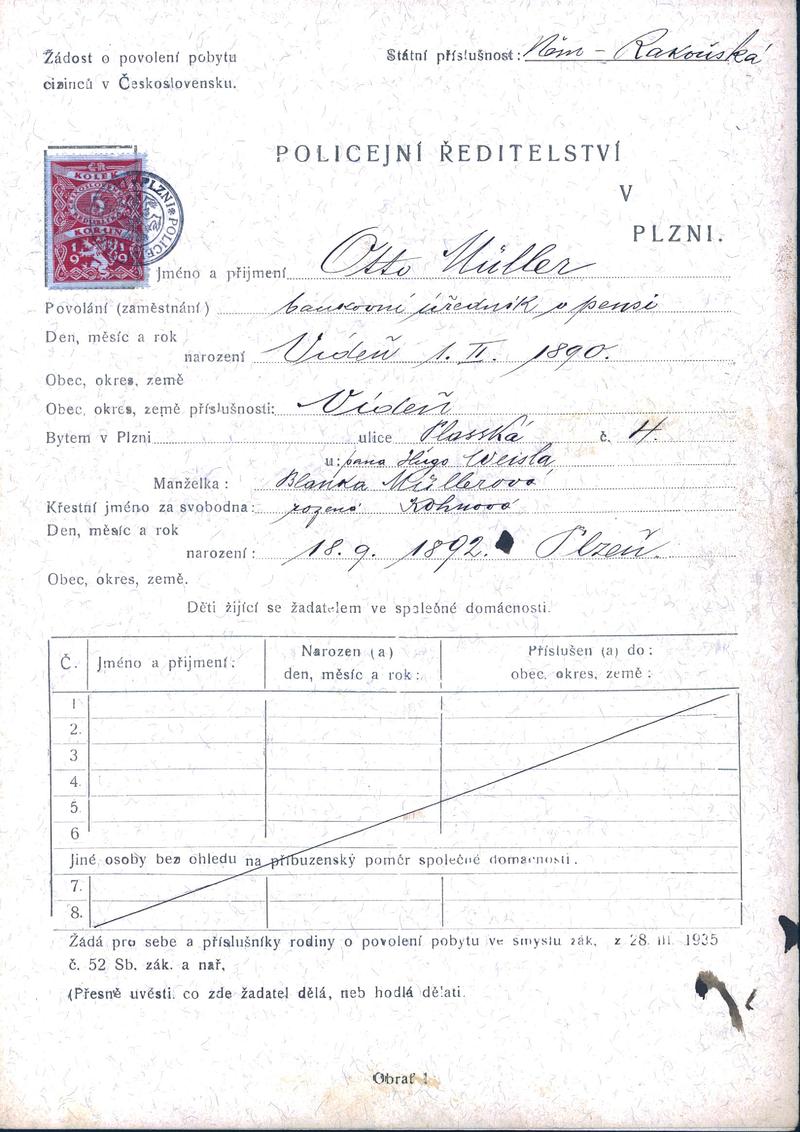 Žádost o povolení pobytu
cizinců v Československu.
Státní příslušnost: Něm - Rakouská
POLICEJNÍ ŘEDITELSTVÍ
V
PLZNI.
KOLEK
5
KORUN
1919
PLZNI * POLICE
Jméno a přijmení Otto Müller
Povolání (zaměstnání) bankovní úředník v pensi
Den, měsíc a rok
narození Vídeň 1. II. 1890.
Obec, okres, země
Obec, okres, země příslušnosti: Vídeň
Bytem v Plzni ulice Plasská č. 4.
u: pana Hugo Weisla
Manželka: Blanka Müllerová
Křestní jméno za svobodna: rozená Kohnová
Den, měsíc a rok
narození: 18. 9. 1892. Plzeň.
Obec, okres, země.
Děti žijící se žadatelem ve společné domácnosti.
Č. Jméno a přijmení: Narozen (a) den, měsíc a rok: Příslušen (a) do: obec, okres, země:
1
2.
3
4.
5.
6
Jiné osoby bez ohledu na příbuzenský poměr společné domácnosti.
7.
8.
Žádá pro sebe a příslušníky rodiny o povolení pobytu ve smyslu zák. z 28. III. 1935
č. 52 Sb. zák. a nař,
(Přesně uvésti. co zde žadatel dělá, neb hodlá dělati.
Obrať !